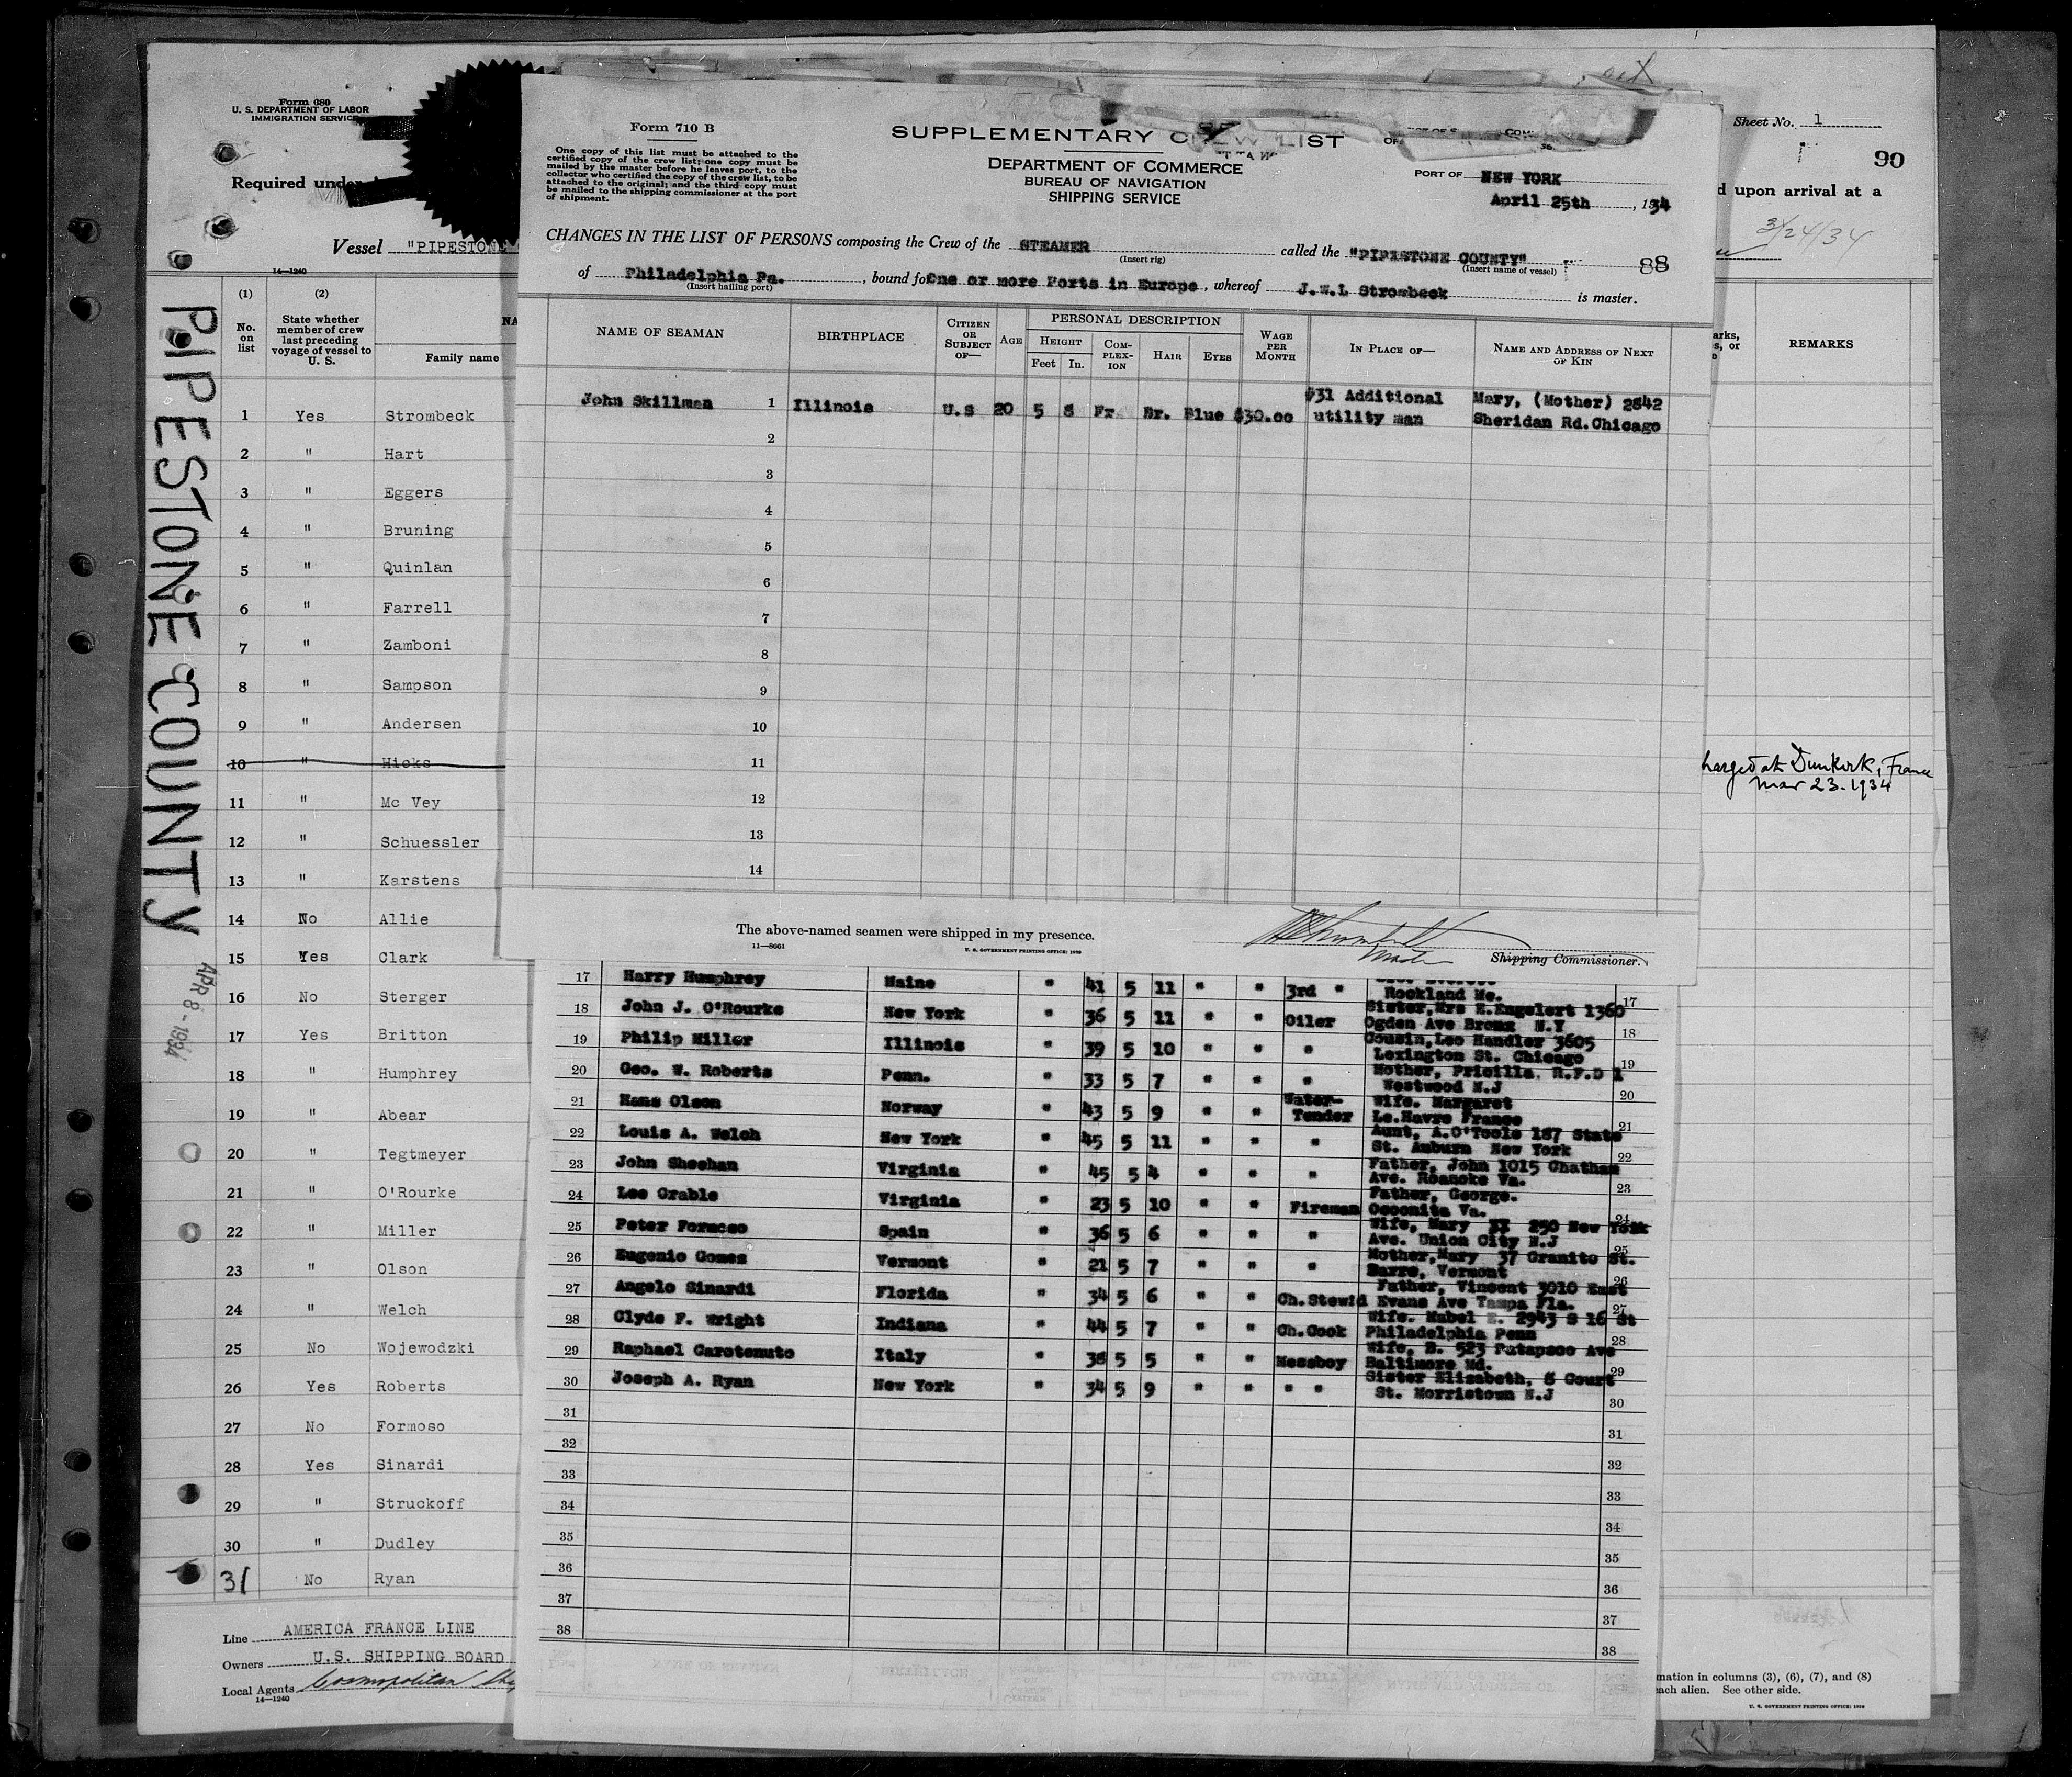 Form 680
U. S. DEPARTMENT OF LABOR
IMMIGRATION SERVICE
Required under
Vessel "PIPESTONE
14—1240
PIPESTONE COUNTY
APR 8 - 1934
(1) (2)
No. on list
State whether member of crew last preceding voyage of vessel to U. S.
NA
Family name
1 Yes Strombeck
2 " Hart
3 " Eggers
4 " Bruning
5 " Quinlan
6 " Farrell
7 " Zamboni
8 " Sampson
9 " Andersen
10 " Hicks
11 " Mc Vey
12 " Schuessler
13 " Karstens
14 No Allie
15 Yes Clark
16 No Sterger
17 Yes Britton
18 " Humphrey
19 " Abear
20 " Tegtmeyer
21 " O'Rourke
22 " Miller
23 " Olson
24 " Welch
25 No Wojewodzki
26 Yes Roberts
27 No Formoso
28 Yes Sinardi
29 " Struckoff
30 " Dudley
31 No Ryan
Line AMERICA FRANCE LINE
Owners U.S. SHIPPING BOARD
Local Agents Cosmopolitan
14—1240
Form 710 B
One copy of this list must be attached to the
certified copy of the crew list; one copy must be
mailed by the master before he leaves port, to the
collector who certified the copy of the crew list, to be
attached to the original; and the third copy must
be mailed to the shipping commissioner at the port
of shipment.
SUPPLEMENTARY CREW LIST
DEPARTMENT OF COMMERCE
BUREAU OF NAVIGATION
SHIPPING SERVICE
PORT OF NEW YORK
April 25th, 1934
CHANGES IN THE LIST OF PERSONS composing the Crew of the STEAMER called the "PIPESTONE COUNTY" 88
(Insert rig) (Insert name of vessel)
of Philadelphia Pa., bound for One or more Ports in Europe, whereof J.W.L Strombeck is master.
(Insert hailing port)
NAME OF SEAMAN
BIRTHPLACE
CITIZEN OR SUBJECT OF—
AGE
PERSONAL DESCRIPTION
HEIGHT
Feet In.
COMPLEXION
HAIR
EYES
WAGE PER MONTH
IN PLACE OF—
NAME AND ADDRESS OF NEXT OF KIN
John Skillman 1 Illinois U.S 20 5 8 Fr Br. Blue $30.00 #31 Additional utility man Mary, (Mother) 2842 Sheridan Rd. Chicago
2
3
4
5
6
7
8
9
10
11
12
13
14
The above-named seamen were shipped in my presence.
11—8661
U. S. GOVERNMENT PRINTING OFFICE: 1929
Shipping Commissioner.
17 Harry Humphrey Maine " 41 5 11 " " 3rd " Rockland Me. 17
18 John J. O'Rourke New York " 36 5 11 " " Oiler Sister, Mrs E. Engelert 1360 Ogden Ave Bronx N.Y 18
19 Philip Miller Illinois " 39 5 10 " " " Cousin, Leo Handler 3605 Lexington St. Chicago 19
20 Geo. W. Roberts Penn. " 33 5 7 " " " Mother, Pricilla. R.F.D 1 Westwood N.J 20
21 Hans Olson Norway " 43 5 9 " " Water-Tender Wife. Margaret Le.Havre France 21
22 Louis A. Welch New York " 45 5 11 " " " Aunt, A.O'Toole 187 State St. Auburn New York 22
23 John Sheehan Virginia " 45 5 4 " " " Father, John 1015 Chatham Ave. Roanoke Va. 23
24 Lee Grable Virginia " 23 5 10 " " Fireman Father, George. Va. 24
25 Peter Formoso Spain " 36 5 6 " " " Wife, Mary 250 New York Ave. Union City N.J 25
26 Eugenio Gomes Vermont " 21 5 7 " " " Mother, Mary 37 Granite St. Barre, Vermont 26
27 Angelo Sinardi Florida " 34 5 6 " " Ch. Stewid Father, Vincent 3010 East Evans Ave Tampa Fla. 27
28 Clyde F. Wright Indiana " 44 5 7 " " Ch. Cook Wife. Mabel E. 2943 S 16 St Philadelphia Penn 28
29 Raphael Carotenuto Italy " 38 5 5 " " Messboy Wife, B. 523 Patapsco Ave Baltimore Md. 29
30 Joseph A. Ryan New York " 34 5 9 " " " " Sister Elizabeth, 8 Court St. Morristown N.J 30
31 31
32 32
33 33
34 34
35 35
36 36
37 37
38 38
Sheet No. 1
90
d upon arrival at a
3/24/34
arks,
s, or
REMARKS
harged at Dunkirk, France
Mar 23. 1934
mation in columns (3), (6), (7), and (8)
each alien. See other side.
U. S. GOVERNMENT PRINTING OFFICE: 1929